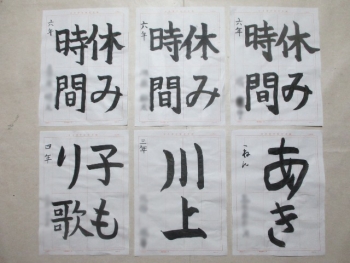 休み
時間
六年
休み
時間
六年
休み
時間
六年
子も
り歌
四年
川上
三年
あき
二ねん